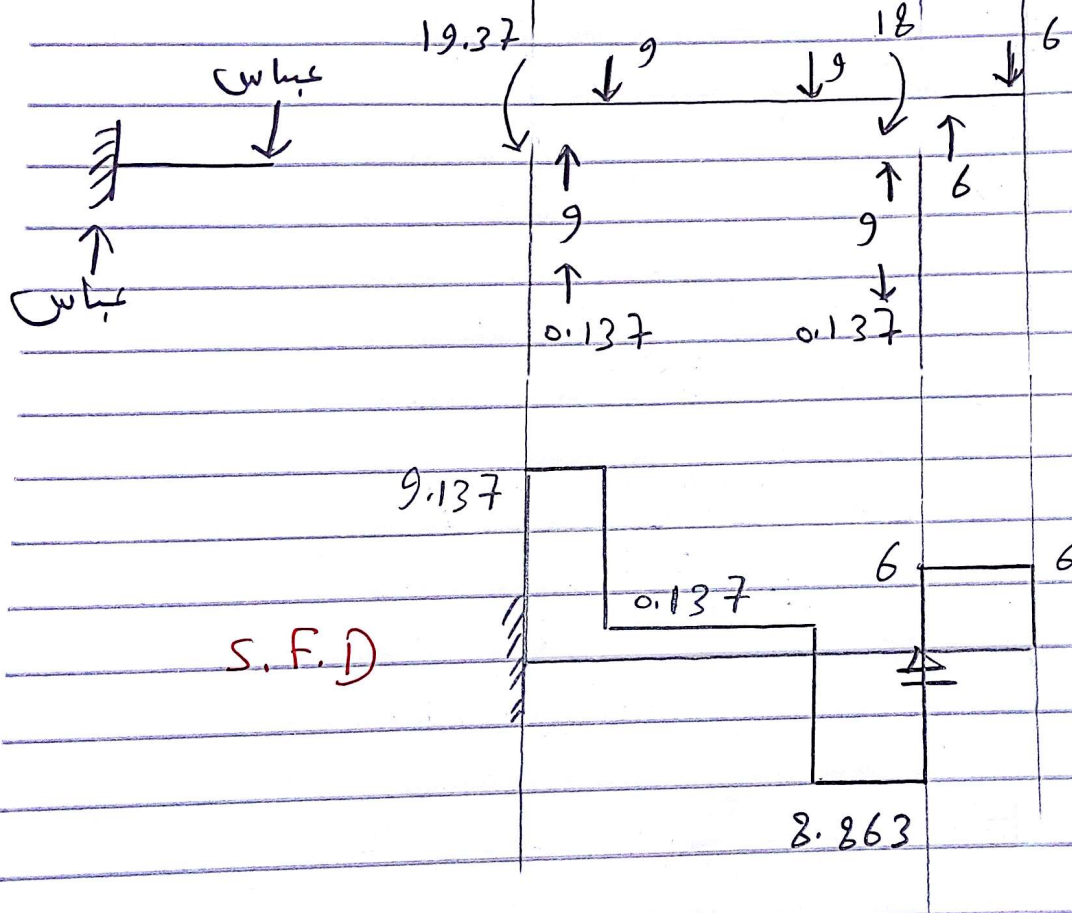 19.37 9 9 18 6
عباس
9 9 6
عباس
0.137 0.137
9.137
6 6
0.137
S.F.D
8.863